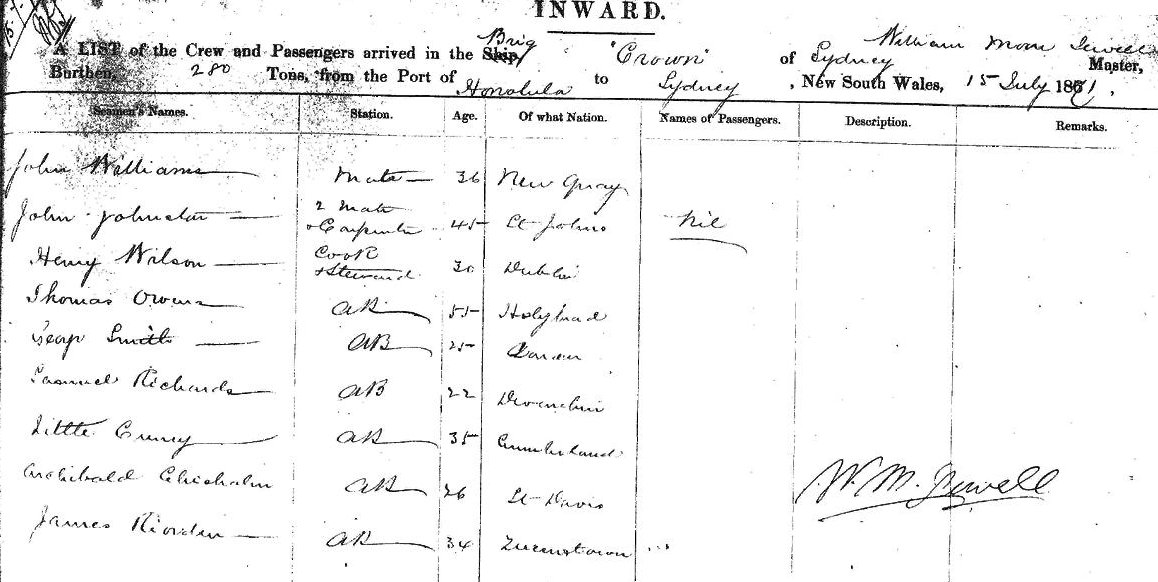 INWARD.
Brig William Moore Sewell
A LIST of the Crew and Passengers arrived in the Ship, "Crown" of Sydney Master,
Burthen, 280 Tons, from the Port of Honolula to Sydney, New South Wales, 15 July 1871.
Seamen's Names. Station. Age. Of what Nation. Names of Passengers. Description. Remarks.
John Williams Mate 36 New Quay
John Johnston 2 Mate + Carpenter 45 St Johns Nil
Henry Wilson Cook + Steward 30 Dublin
Thomas Owens AB 55 Holyhead
George Smith AB 25
Samuel Richards AB 22 Devonshire
Little AB 35 Cumberland
Archibald Chisholm AB 26 St Davis
W. M. Sewell
James Riorden AB 34 Queenstown